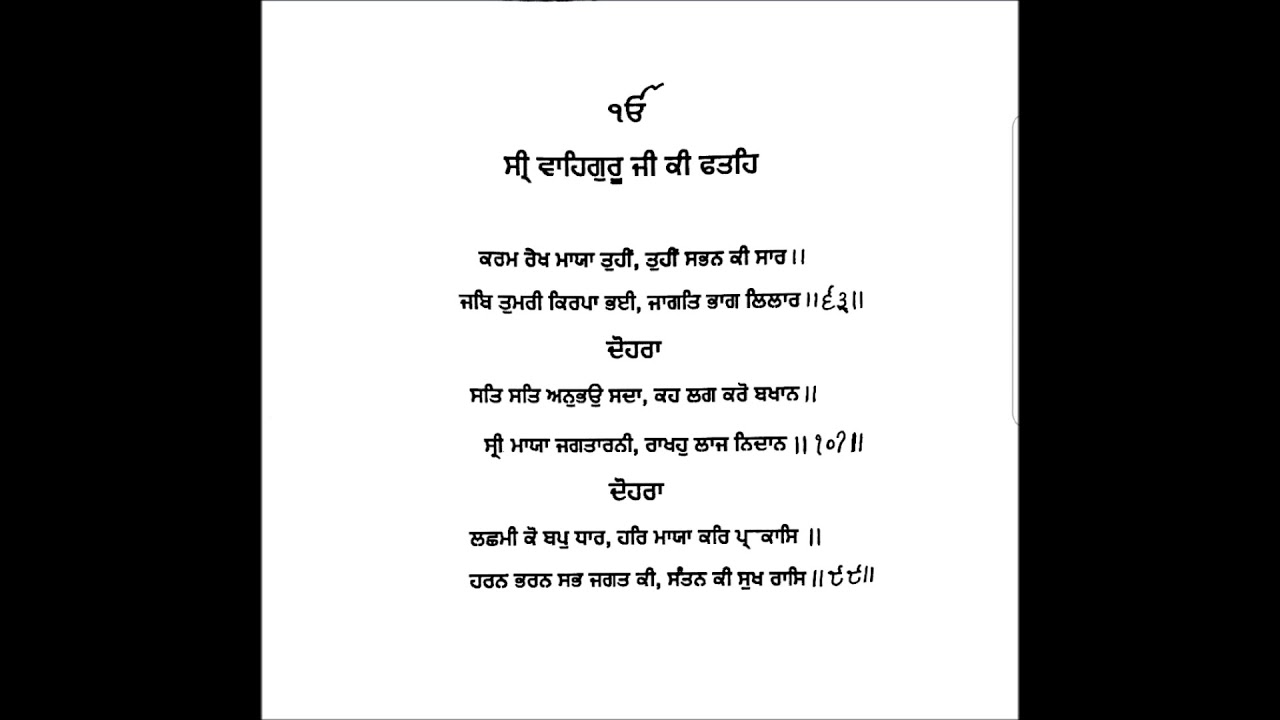 ੴ
ਸ੍ਰੀ ਵਾਹਿਗੁਰੂ ਜੀ ਕੀ ਫਤਹਿ
ਕਰਮ ਰੇਖ ਮਾਯਾ ਤੁਹੀਂ, ਤੁਹੀਂ ਸਭਨ ਕੀ ਸਾਰ।।
ਜਬਿ ਤੁਮਰੀ ਕਿਰਪਾ ਭਈ, ਜਾਗਤਿ ਭਾਗ ਲਿਲਾਰ।।੬੩।।
ਦੋਹਰਾ
ਸਤਿ ਸਤਿ ਅਨੁਭਉ ਸਦਾ, ਕਹ ਲਗ ਕਰੋ ਬਖਾਨ।।
ਸ੍ਰੀ ਮਾਯਾ ਜਗਤਾਰਨੀ, ਰਾਖਹੁ ਲਾਜ ਨਿਦਾਨ ।।੧੦੧।।
ਦੋਹਰਾ
ਲਛਮੀ ਕੋ ਬਪੁ ਧਾਰ, ਹਰਿ ਮਾਯਾ ਕਰਿ ਪ੍ਰਕਾਸਿ ।।
ਹਰਨ ਭਰਨ ਸਭ ਜਗਤ ਕੀ, ਸੰਤਨ ਕੀ ਸੁਖ ਰਾਸਿ ।।੯੯।।